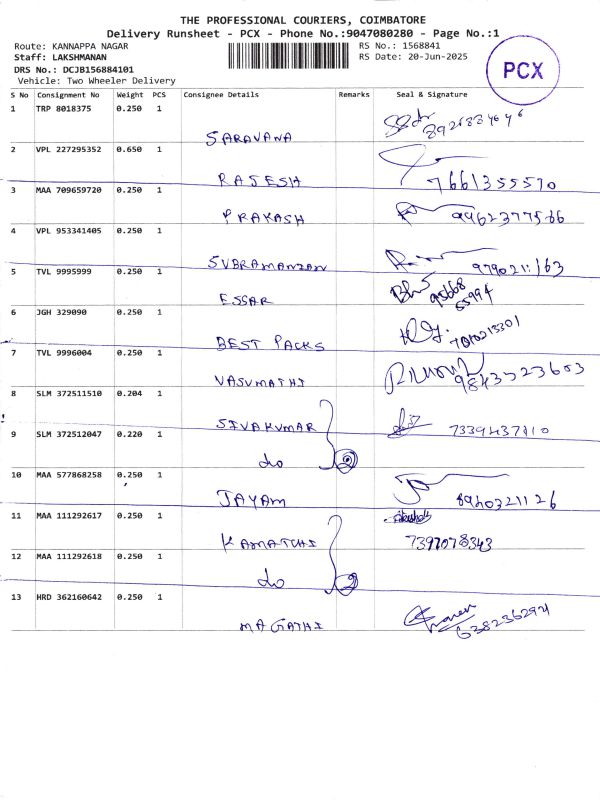 THE PROFESSIONAL COURIERS, COIMBATORE
Delivery Runsheet - PCX - Phone No.:9047080280 - Page No.:1
Route: KANNAPPA NAGAR RS No.: 1568841
Staff: LAKSHMANAN RS Date: 20-Jun-2025
DRS No.: DCJB156884101
Vehicle: Two Wheeler Delivery
PCX
S No Consignment No Weight PCS Consignee Details Remarks Seal & Signature
1 TRP 8018375 0.250 1
SARAVANA
2 VPL 227295352 0.650 1
RAJESH 7661355570
3 MAA 709659720 0.250 1
PRAKASH 9962377566
4 VPL 953341405 0.250 1
SUBRAMANIAN 9790211163
5 TVL 9995999 0.250 1
ESSAR 95668 55994
6 JGH 329090 0.250 1
BEST PACKS 7010213301
7 TVL 9996004 0.250 1
VASUMATHI 9843323603
8 SLM 372511510 0.204 1
SIVAKUMAR 7339437110
9 SLM 372512047 0.220 1
do
10 MAA 577868258 0.250 1
JAYAM 8940321126
11 MAA 111292617 0.250 1
KAMATCHI 7397078343
12 MAA 111292618 0.250 1
do
13 HRD 362160642 0.250 1
MAGATHI 6382362921